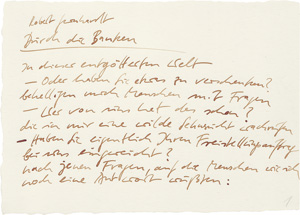 Robert Gernhardt
Durch die Banken
In dieser entgötterten Welt
– Oder haben Sie etwas zu verschenken?
behelligen mich Menschen mit Fragen
– Wer von uns hat das schon?
die in mir eine wilde Sehnsucht wachrufen
– Haben Sie eigentlich Ihren Freistellungsauftrag
bei uns eingereicht?
nach jenen Fragen, auf die Menschen
noch eine Antwort wüßten:
1